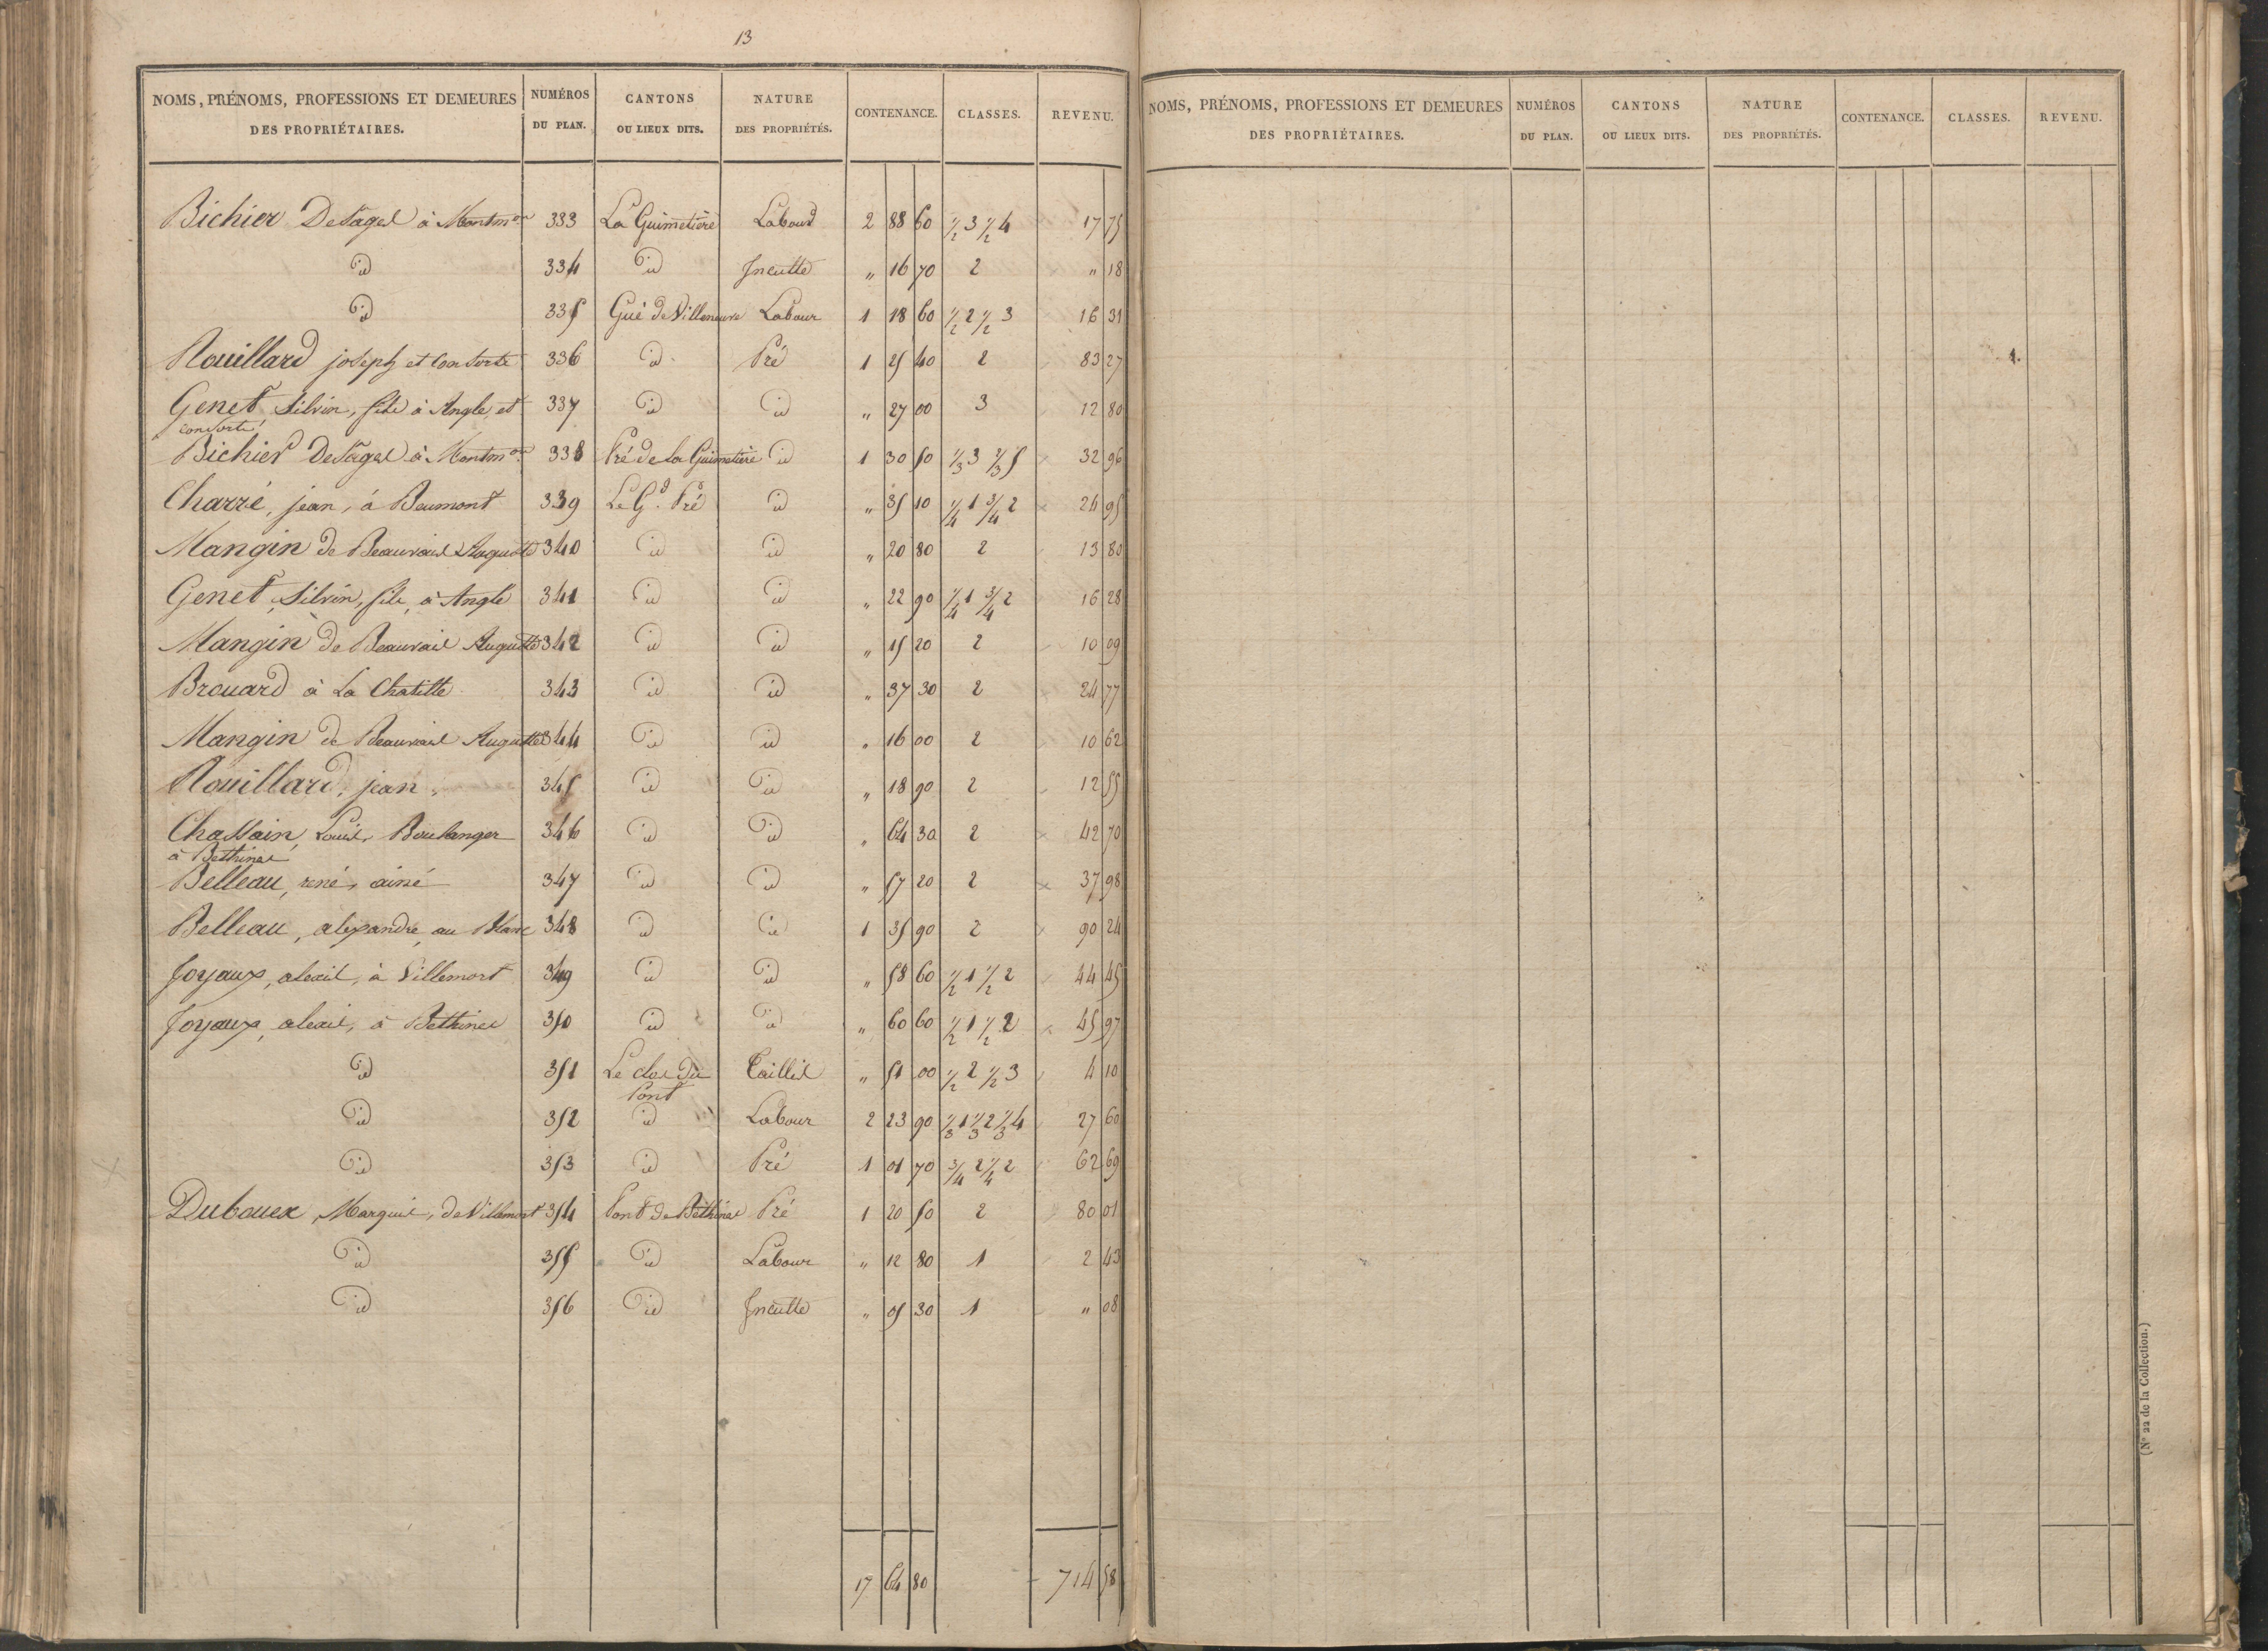 13
NOMS, PRÉNOMS, PROFESSIONS ET DEMEURES DES PROPRIÉTAIRES. NUMÉROS DU PLAN. CANTONS OU LIEUX DITS. NATURE DES PROPRIÉTÉS. CONTENANCE. CLASSES. REVENU.
Bichier Desages à Montmon 333 La Guimetière Labour 2 88 60 1/2 3 1/2 4 17 75
id 334 id Inculte " 16 70 2 " 18
id 335 Gué de Villeneuve Labour 1 18 60 1/2 2 1/2 3 16 31
Rouillard joseph et Consorts 336 id Pré 1 25 40 2 83 27
Genet Silvin, fils à Angle, et 337 id id " 27 00 3 12 80
consorts
Bichier Desages à Montmon 338 Pré de la Guimetière id 1 30 50 1/3 3 2/3 5 32 96
Charré, jean, à Beumont 339 Le Gd. Pré id " 35 10 1/4 1 3/4 2 24 95
Mangin de Beauvais Auguste 340 id id " 20 80 2 13 80
Genet, Silvin, fils, à Angle 341 id id " 22 90 1/4 1 3/4 2 16 28
Mangin de Beauvais Auguste 342 id id " 15 20 2 10 09
Brouard à La Chatille 343 id id " 37 30 2 24 77
Mangin de Beauvais Auguste 344 id id " 16 00 2 10 62
Rouillard, jean, 345 id id " 18 90 2 12 55
Chassain, Louis, Boulanger 346 id id " 64 30 2 42 70
à Bethines
Belleau, rené, ainé 347 id id " 57 20 2 37 98
Belleau, alexandre, au Blanc 348 id id 1 35 90 2 90 24
Joyaux, alexis, à Villemort 349 id id " 58 60 1/2 1 1/2 2 44 45
Joyaux, alexis, à Bethines 350 id id " 60 60 1/2 1 1/2 2 45 97
id 351 Le clos du Taillis " 51 00 1/2 2 1/2 3 4 10
Pont
id 352 id Labour 2 23 90 1/3 1 1/3 2 1/3 4 27 60
id 353 id Pré 1 01 70 3/4 2 1/4 2 62 69
Dubouex, Marquis, de Villemort 354 Pont de Bethines Pré 1 20 50 2 80 01
id 355 id Labour " 12 80 1 2 43
id 356 id Inculte " 05 30 1 " 08
17 64 80 714 58
NOMS, PRÉNOMS, PROFESSIONS ET DEMEURES DES PROPRIÉTAIRES. NUMÉROS DU PLAN. CANTONS OU LIEUX DITS. NATURE DES PROPRIÉTÉS. CONTENANCE. CLASSES. REVENU.
(N° 22 de la Collection.)